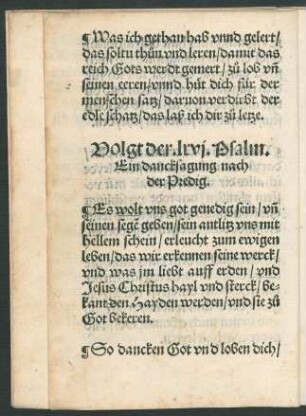 ¶ Was ich gethan hab vnnd gelert/
das soltu thůn vnd leren/ damit das
reich Gots werdt gemert/ zů lob vñ
seinen eeren/ vnnd hüt dich für der
menschen satz/ daruon verdirbt der
edle schatz/ das laß ich dir zů letze.
Volgt der. lxvj. Psalm.
Ein dancksagung nach
der Predig.
¶ Es wolt vns got genedig sein/ vñ
seinen segẽ geben/ sein antlitz vns mit
hellem schein/ erleucht zum ewigen
leben/ das wir erkennen seine werck/
vnd was jm liebt auff erden/ vnd
Jesus Christus hayl vnd sterck/ be-
kant den Hayden werden/ vnd sie zů
Got bekeren.
¶ So dancken Got vnd loben dich/